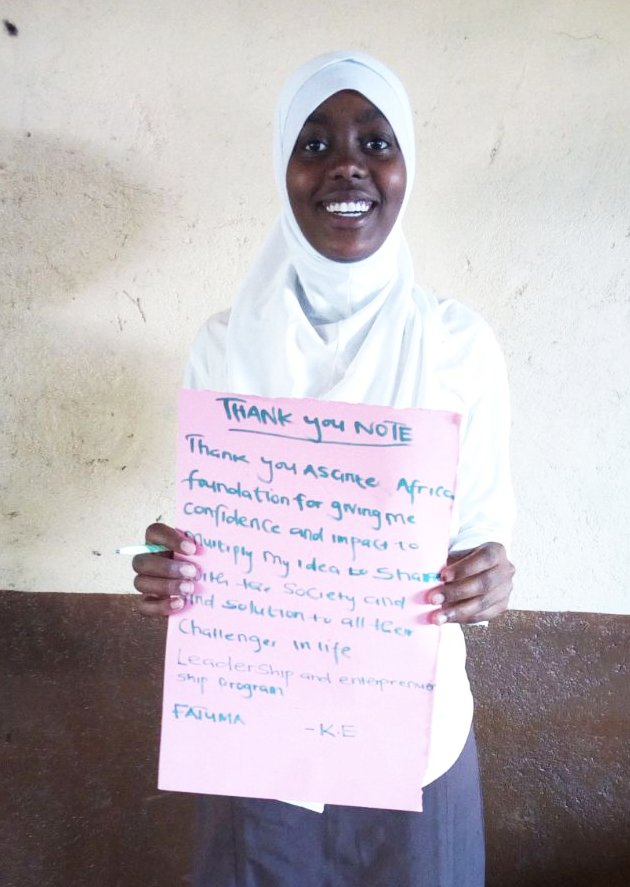 THANK you NOTE
Thank you Asante Africa
foundation for giving me
confidence and impact to
multiply my idea to Share
with the Society and
find solution to all their
Challenges in life
Leadership and entrepreneur
ship program
FATUMA - K.E